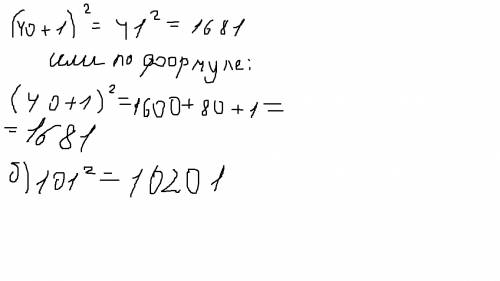 (40+1)² = 41² = 1681
или по формуле:
(40+1)²=1600+80+1=
=1681
б) 101² = 10201